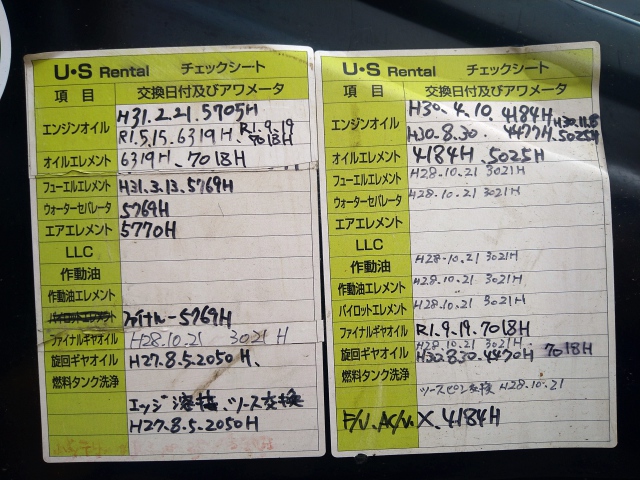 U・S Rental チェックシート
項 目 交換日付及びアワメータ
エンジンオイル H31.2.21.5705H
R1.5.15.6319H、R1.9.19 7018H
オイルエレメント 6319H、7018H
フューエルエレメント H31.3.13.5769H
ウォーターセパレータ 5769H
エアエレメント 5770H
LLC
作動油
作動油エレメント
パイロットエレメント ファイナルー5769H
ファイナルギヤオイル H28.10.21 3021H
旋回ギヤオイル H27.8.5.2050H、
燃料タンク洗浄
エッジ溶接、ツース交換
H27.8.5.2050H
U・S Rental チェックシート
項 目 交換日付及びアワメータ
エンジンオイル H30.4.10.4184H
H30.8.30. 4477H、5025H
オイルエレメント 4184H、5025H
フューエルエレメント H28.10.21 3021H
ウォーターセパレータ H28.10.21 3021H
エアエレメント
LLC
作動油 H28-10.21 3021H
作動油エレメント H28.10.21 3021H
パイロットエレメント H28.10.21 3021H
ファイナルギヤオイル R1.9.19.7018H
H28.10.21 3021H
旋回ギヤオイル H30.8.30.4470H 7018H
燃料タンク洗浄
ツースピン交換 H28.10.21
4184H